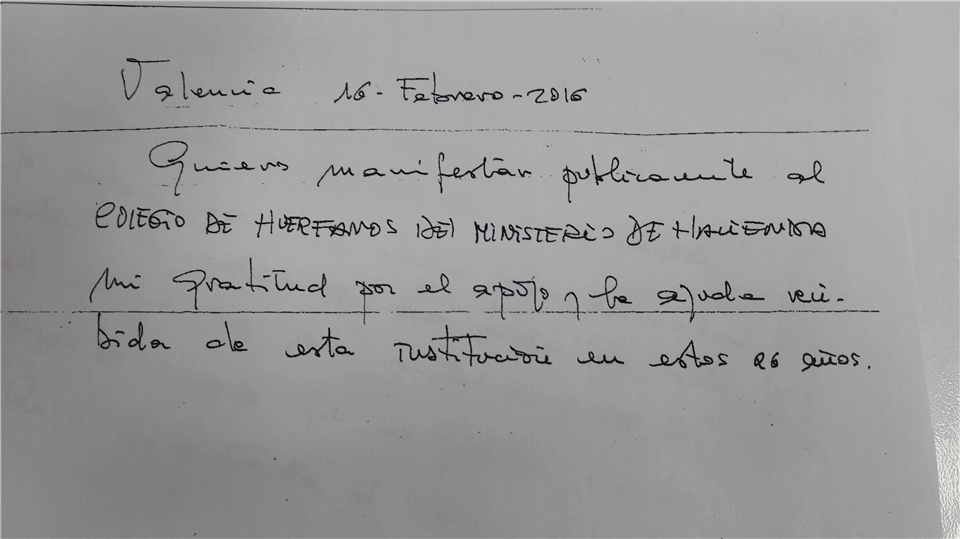 Valencia 16-Febrero-2016
Quiero manifestar publicamente al
COLEGIO DE HUERFANOS DEL MINISTERIO DE HACIENDA
mi gratitud por el apoyo y la ayuda reci-
bida de esta institución en estos 26 años.